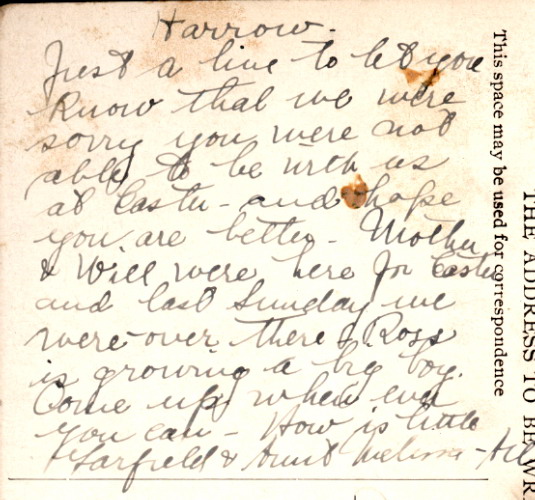 Harrow.
Just a line to let you
know that we were
sorry you were not
able to be with us
at Easter - and hope
you are better - Mother
& Will were here for Easter
and last Sunday we
were over there & Ross
is growing a big boy.
Come up when ever
you can - How is little
Garfield & Aunt Melissa -
This space may be used for correspondence
THE ADDRESS TO BE WR